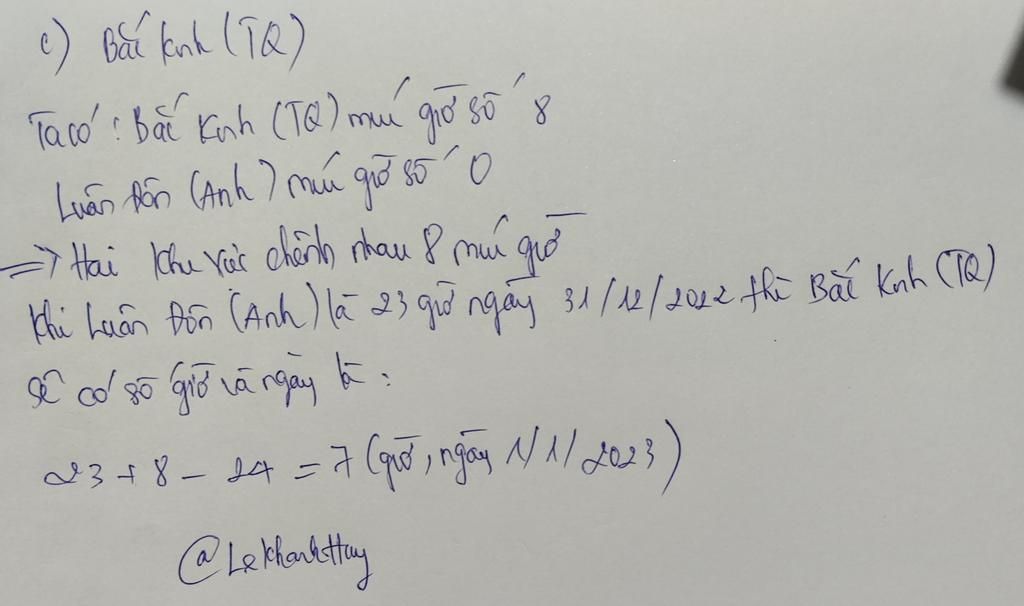 c) Bắc Kinh (TQ)
Ta có: Bắc Kinh (TQ) múi giờ số 8
Luân Đôn (Anh) múi giờ số 0
=> Hai khu vực chênh nhau 8 múi giờ
Khi Luân Đôn (Anh) là 23 giờ ngày 31/12/2022 thì Bắc Kinh (TQ)
sẽ có số giờ và ngày là:
23 + 8 - 24 = 7 (giờ, ngày 1/1/2023)
@LekhanhHuy